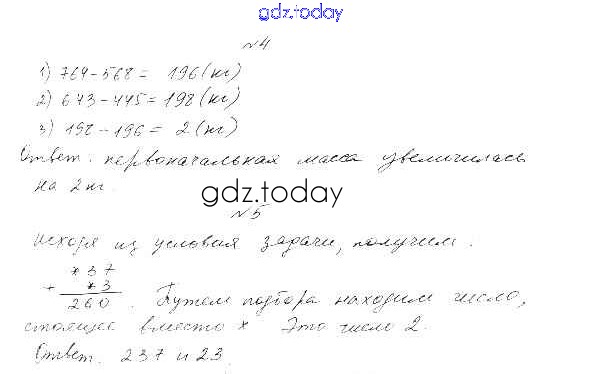 gdz.today
№4
1) 764-568= 196(кг)
2) 643-445=198(кг)
3) 198-196= 2(кг)
Ответ: первоначальная масса увеличилась
на 2 кг.
gdz.today
№5
исходя из условия задачи, получим.
*37
+ *3
260. Путем подбора находим число,
стоящее вместо * Это число 2.
Ответ. 237 и 23.